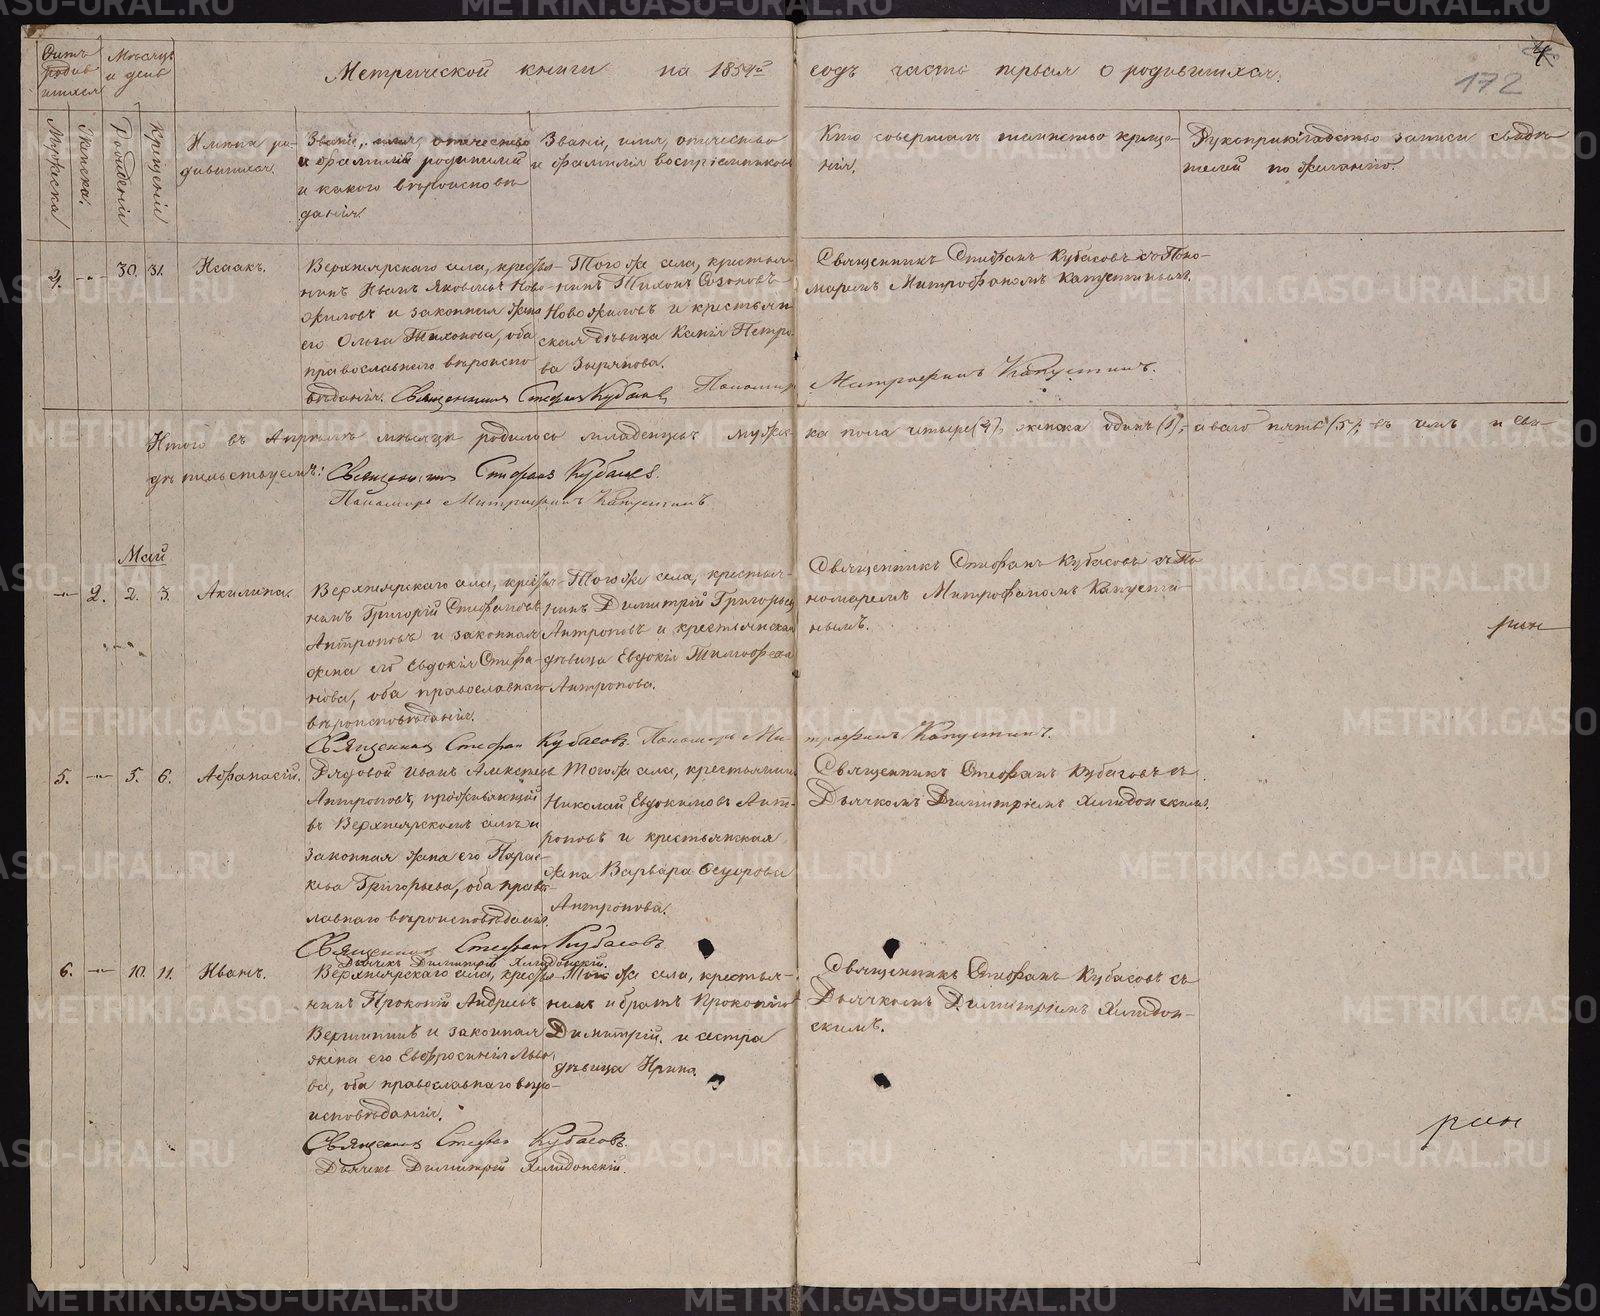 Метрической книги на 1859й годъ часть первая о родившихся.
4
172
Счетъ родившихся
Мѣсяцъ и день
Мужеска
Женска.
Рожденія
Крещенія
Имена родившихся.
Званіе, имя, отчество
и фамилія родителей
и какого вѣроисповѣ
данія.
Званіе, имя, отчество
и фамилія воспріемниковъ
Кто совершалъ таинство креще-
нія.
Рукоприкладство записи свидѣ
телей по желанію.
4. 30. 31. Исаакъ.
Верхнеярскаго села, крестья-
нинъ Иванъ Яковлевъ Ново-
жиловъ и законная жена
его Ольга Тихонова, оба
православнаго вѣроиспо
вѣданія.
Того же села, крестья-
нинъ Тихонъ Созоновъ
Новожиловъ и крестьян
ская дѣвица Ксенія Петро
ва Зырянова.
Священникъ Стефанъ Кубасовъ съ Поно-
маремъ Митрофаномъ Капустинымъ.
Священникъ Стефанъ Кубасовъ Пономарь Митрофанъ Капустинъ.
Итого въ Апрѣлѣ мѣсяцѣ родилось младенцевъ мужес-
ка пола четыре (4), женска одинъ (1), а всего пять (5); въ чемъ и сви-
дѣтельствуемъ: Священникъ Стефанъ Кубасовъ.
Пономарь Митрофанъ Капустинъ.
Май
2. 2. 3. Акилина.
Верхнеярскаго села, крестья-
нинъ Григорій Стефановъ
Антроповъ и законная
жена его Евдокія Стефа-
нова, оба православнаго
вѣроисповѣданія.
Того же села, крестья-
нинъ Димитрій Григорьевъ
Антроповъ и крестьянская
дѣвица Евдокія Тимофеева
Антропова.
Священникъ Стефанъ Кубасовъ съ По
номаремъ Митрофаномъ Капусти-
нымъ.
Священникъ Стефанъ Кубасовъ. Пономарь Ми-
трофанъ Капустинъ.
5. 5. 6. Афанасій.
Рядовой Иванъ Алексѣевъ
Антроповъ, проживающій
въ Верхнеярскомъ селѣ и
законная жена его Парас-
кева Григорьева, оба право-
славнаго вѣроисповѣданія.
Того же села, крестьянинъ
Николай Евдокимовъ Ант-
роповъ и крестьянская
жена Варвара Федорова
Антропова.
Священникъ Стефанъ Кубасовъ съ
Дьячкомъ Димитріемъ Хелидонскимъ.
Священникъ Стефанъ Кубасовъ
Дьячекъ Димитрій Хелидонскій.
6. 10. 11. Иванъ.
Верхнеярскаго села, крестья-
нинъ Прокопій Андреевъ
Вершининъ и законная
жена его Евфросинія Льво-
ва, оба православнаго вѣро-
исповѣданія.
Того же села, крестья-
нинъ и братъ Прокопію
Димитрій. и сестра
дѣвица Ирина.
Священникъ Стефанъ Кубасовъ съ
Дьячкомъ Димитріемъ Хелидон-
скимъ.
Священникъ Стефанъ Кубасовъ.
Дьячекъ Димитрій Хелидонскій.
METRIKI.GASO-URAL.RU